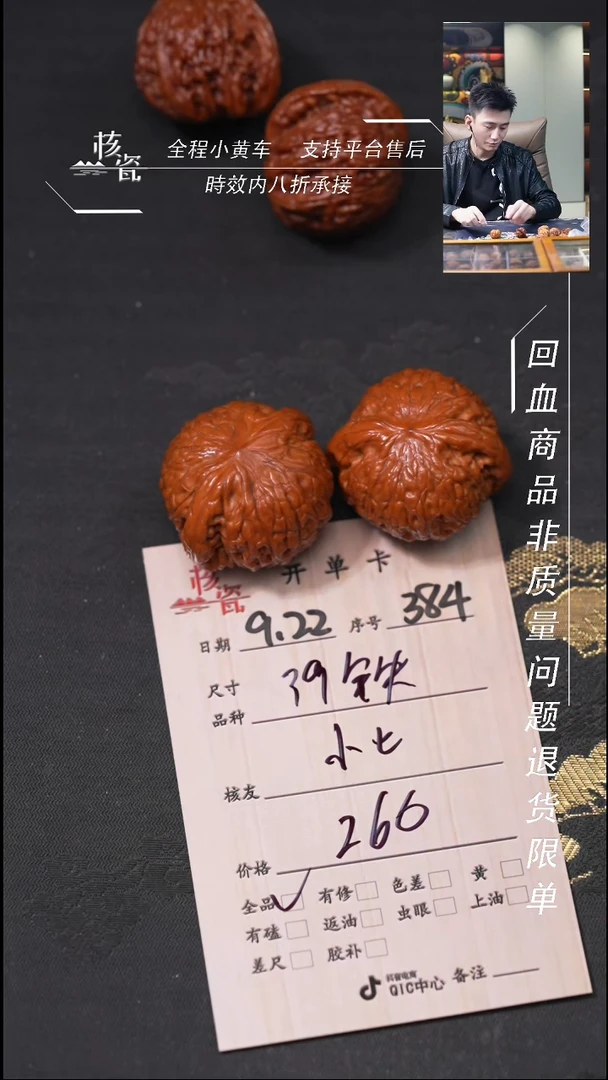 核瓷
全程小黄车 支持平台售后
時效内八折承接
回血商品非质量问题退货限单
核瓷 开单卡
日期 9.22 序号 384
尺寸 39 铁
品种
小七
核友
266
价格
全品 有修 色差 黄
有磕 返油 虫眼 上油
差尺 胶补
抖音电商
QIC中心 备注